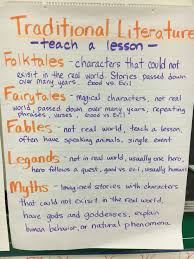 Traditional Literature
- teach a lesson -
Folktales - characters that could not
exisit in the real world. Stories passed down
over many years. Good vs Evil
Fairytales - magical characters, not real
world, passed down over many years, repeating
phrases, verses, Good vs Evil
Fables - not real world, teach a lesson,
often have speaking animals, single event
Legands - not in real world, usually one hero,
hero follows a quest, good vs evil, usually human
Myths - Imagined stories with characters
that could not exisit in the real world,
have gods and goddesses, explain
human behavior, or natural phenomena